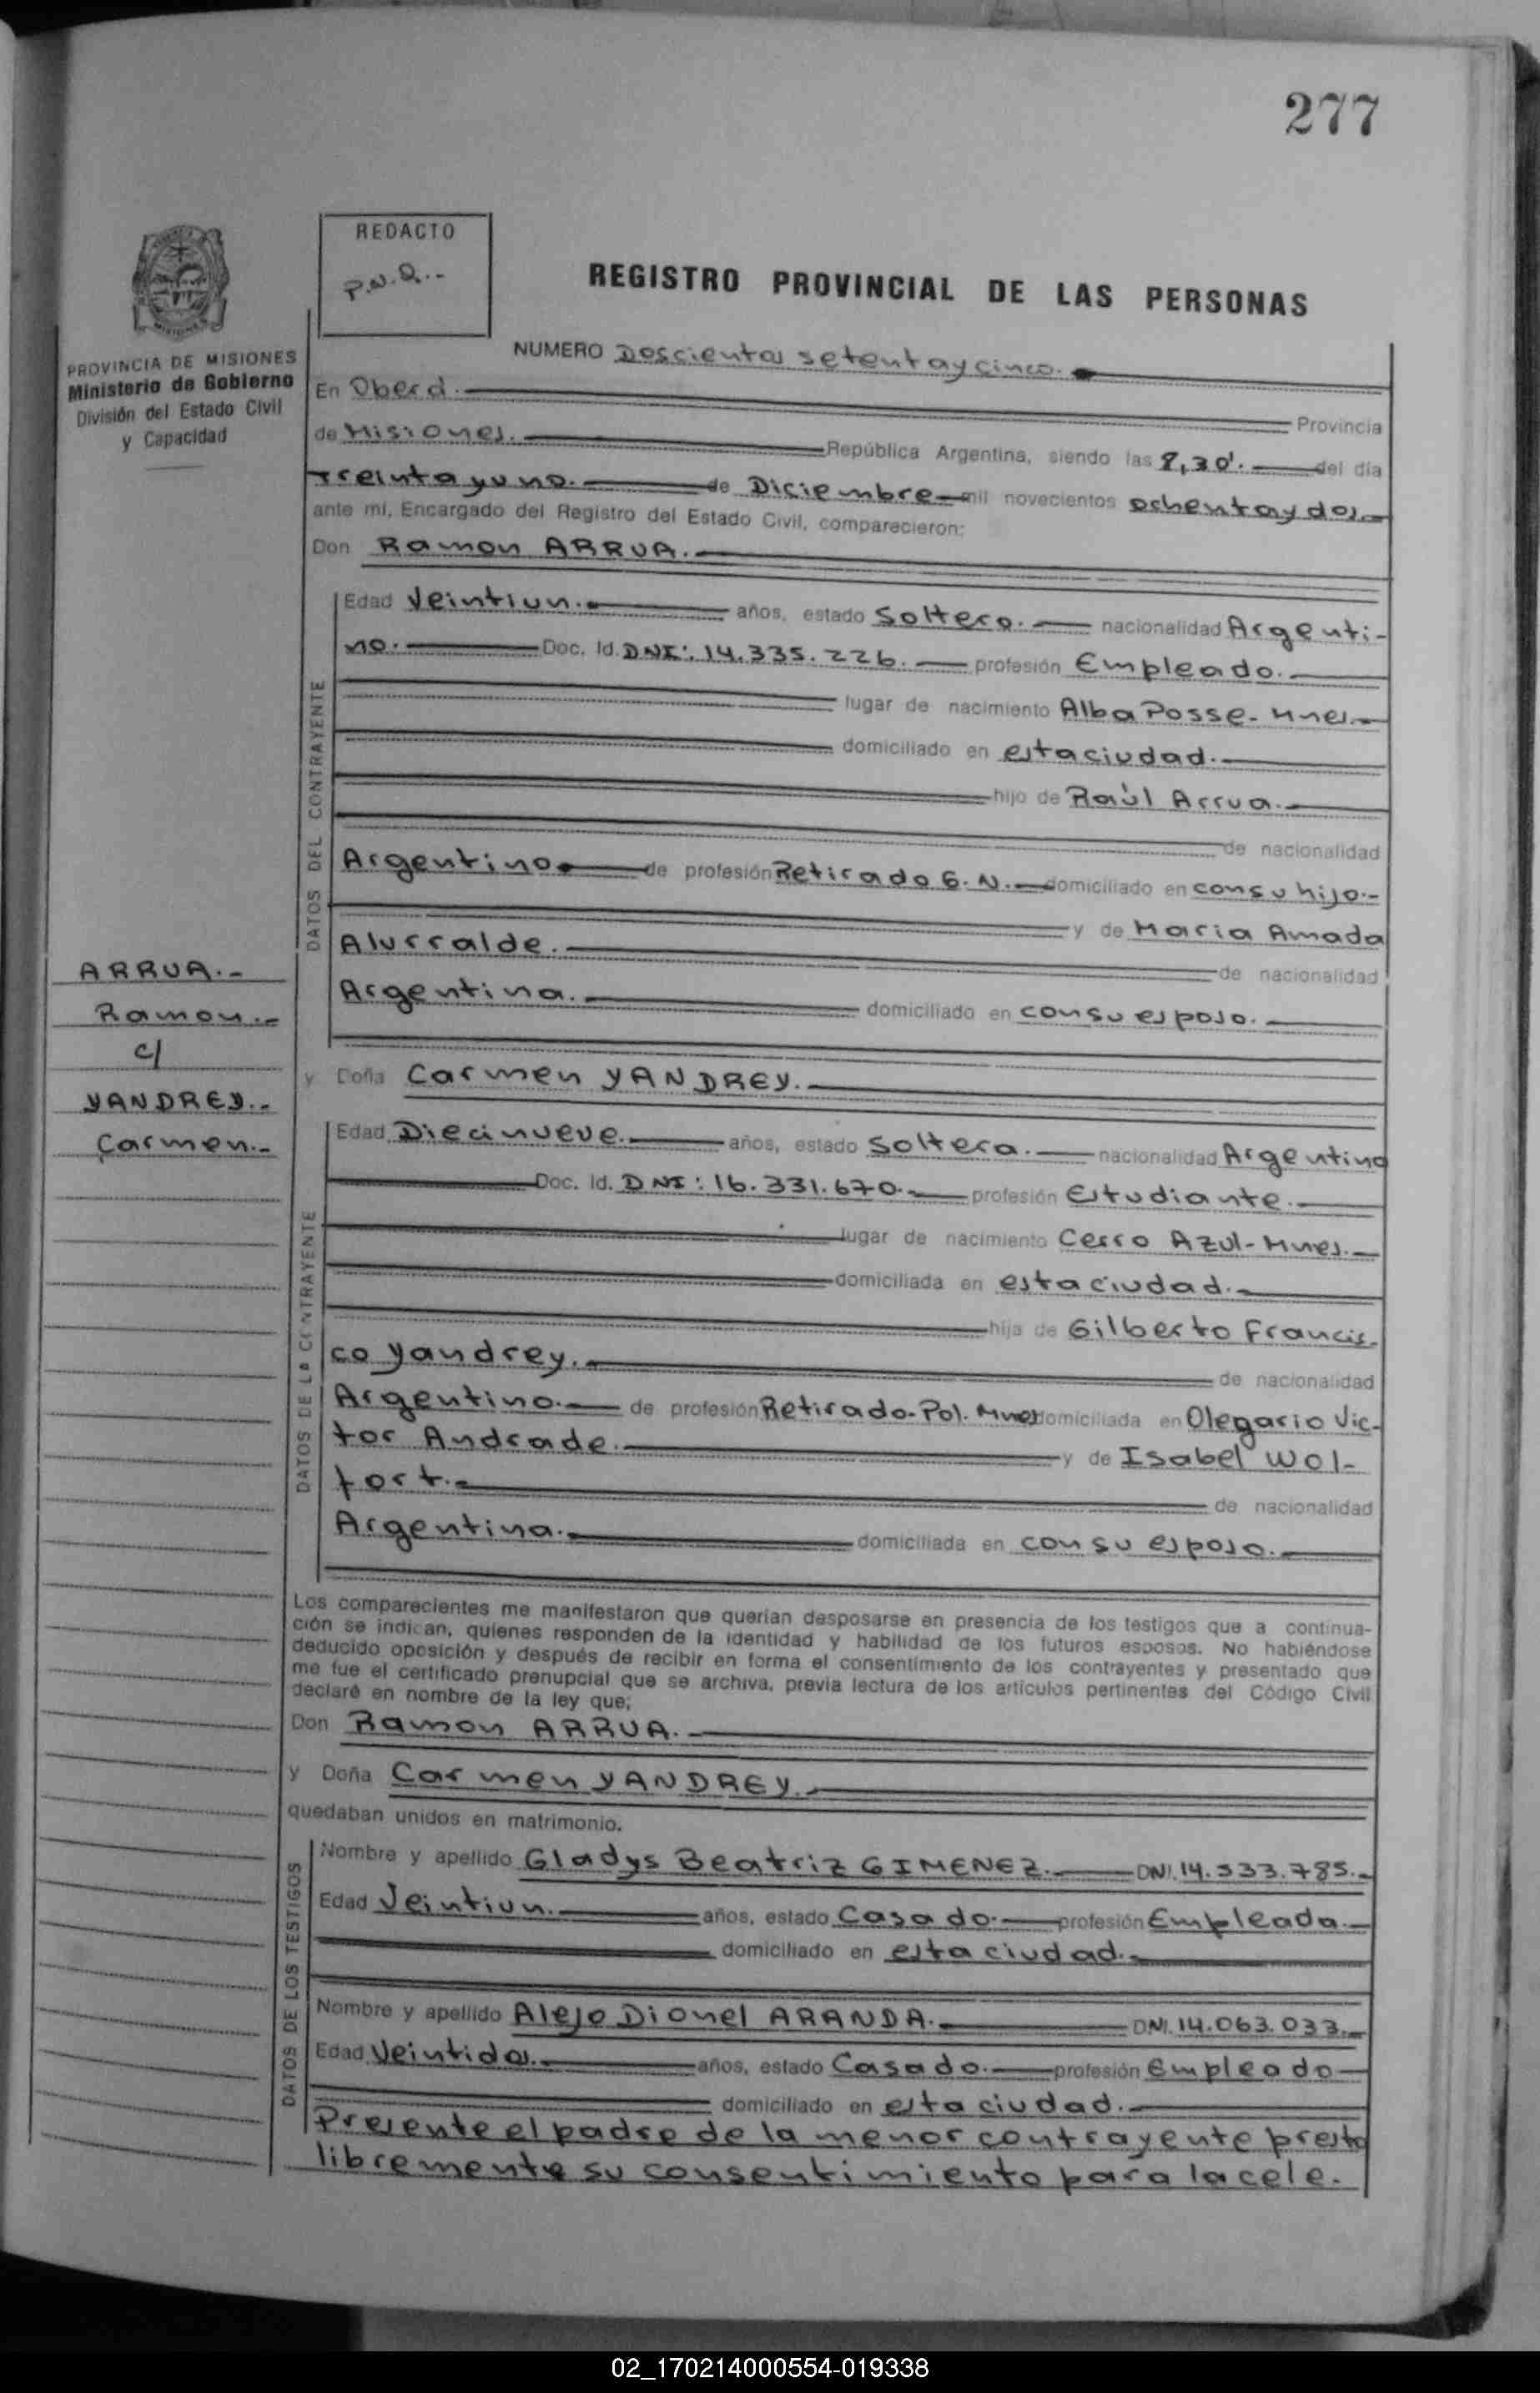 277
REDACTO
P.N.Q..-
REGISTRO PROVINCIAL DE LAS PERSONAS
PROVINCIA DE MISIONES
Ministerio de Gobierno
División del Estado Civil
y Capacidad
NUMERO Doscientos setentaycinco.
En Oberá. Provincia
de Misiones. República Argentina, siendo las 8,30'. del día
treintayuno. de Diciembre mil novecientos ochentaydos.
ante mí, Encargado del Registro del Estado Civil, comparecieron:
Don Ramon ARRUA.
DATOS DEL CONTRAYENTE
Edad Veintiun. años, estado Soltero. nacionalidad Argenti-
no. Doc. Id. DNI: 14.335.226. profesión Empleado.
lugar de nacimiento Alba Posse- Mnes.
domiciliado en esta ciudad.
hijo de Raúl Arrua.
de nacionalidad
Argentino de profesión Retirado G.N. domiciliado en con su hijo.-
y de Maria Amada
Alurralde. de nacionalidad
Argentina. domiciliado en con su esposo.
ARRUA.-
Ramon.-
c/
YANDREY.-
Carmen.-
y Doña Carmen YANDREY.
DATOS DE LA CONTRAYENTE
Edad Diecinueve. años, estado Soltera. nacionalidad Argentina
Doc. Id. DNI: 16.331.670. profesión Estudiante.
lugar de nacimiento Cerro Azul- Mnes.
domiciliada en esta ciudad.
hija de Gilberto Francis-
co Yandrey. de nacionalidad
Argentino. de profesión Retirado-Pol. Mnes domiciliada en Olegario Vic-
tor Andrade. y de Isabel Wol-
fart. de nacionalidad
Argentina. domiciliada en con su esposo.
Los comparecientes me manifestaron que querían desposarse en presencia de los testigos que a continua-
ción se indican, quienes responden de la identidad y habilidad de los futuros esposos. No habiéndose
deducido oposición y después de recibir en forma el consentimiento de los contrayentes y presentado que
me fue el certificado prenupcial que se archiva, previa lectura de los artículos pertinentes del Código Civil
declaré en nombre de la ley que;
Don Ramon ARRUA.
y Doña Carmen YANDREY.
quedaban unidos en matrimonio.
DATOS DE LOS TESTIGOS
Nombre y apellido Gladys Beatriz GIMENEZ. DNI. 14.533.785.
Edad Veintiun. años, estado Casado. profesión Empleada.
domiciliado en esta ciudad.
Nombre y apellido Alejo Dionel ARANDA. DNI. 14.063.033.
Edad Veintidos. años, estado Casado. profesión Empleado
domiciliado en esta ciudad.
Presente el padre de la menor contrayente presto
libremente su consentimiento para la cele-
02_170214000554-019338